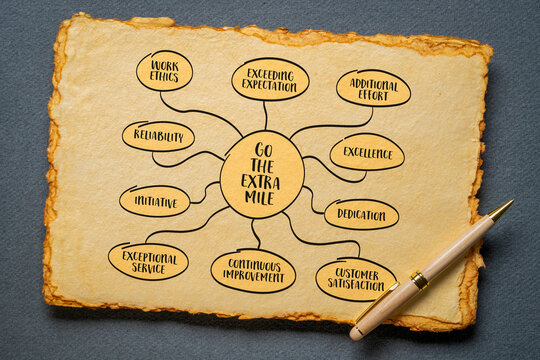 WORK
ETHICS
EXCEEDING
EXPECTATION
ADDITIONAL
EFFORT
RELIABILITY
GO
THE
EXTRA
MILE
EXCELLENCE
INITIATIVE
DEDICATION
EXCEPTIONAL
SERVICE
CONTINUOUS
IMPROVEMENT
CUSTOMER
SATISFACTION